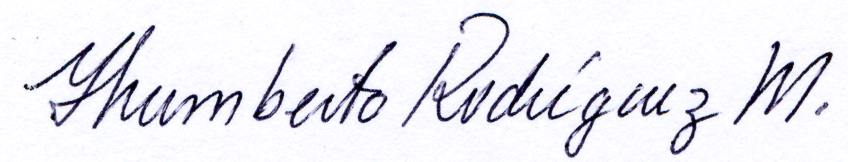 Jhumberto Rodríguez M.